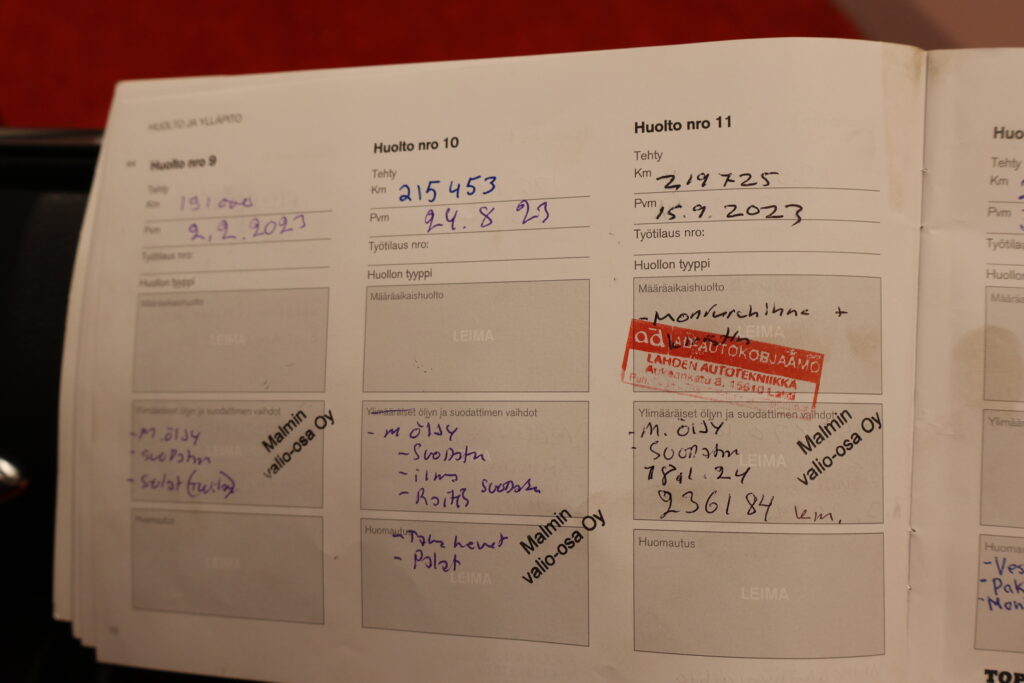 HUOLTO JA YLLÄPITO
Huolto nro 9
Tehty
Km 191000
Pvm 2.2.2023
Työtilaus nro:
Huollon tyyppi
Määräaikaishuolto
LEIMA
Ylimääräiset öljyn ja suodattimen vaihdot
- M. ÖLJY
- SUODATIN
Malmin
valio-osa Oy
Huomautus
LEIMA
Huolto nro 10
Tehty
Km 215 453
Pvm 24.8 23
Työtilaus nro:
Huollon tyyppi
Määräaikaishuolto
LEIMA
Ylimääräiset öljyn ja suodattimen vaihdot
- M ÖLJY
- SUODATIN
- ilma
- Raitis suodatin
Huomautus
- Palat
LEIMA
Malmin
valio-osa Oy
Huolto nro 11
Tehty
Km 219725
Pvm 15.9.2023
Työtilaus nro:
Huollon tyyppi
Määräaikaishuolto
- Moniurahihna +
LEIMA
ad AD-AUTOKORJAAMO
LAHDEN AUTOTEKNIIKKA
Ylimääräiset öljyn ja suodattimen vaihdot
- M. ÖLJY
- SUODATIN
18.1.24
236184 km.
LEIMA
Malmin
valio-osa Oy
Huomautus
LEIMA
Huo
Tehty
Km
Pvm
Työtila
Huollo
Määrä
Ylimää
Huoma
- Ves
- Pak
- Mon
TOP